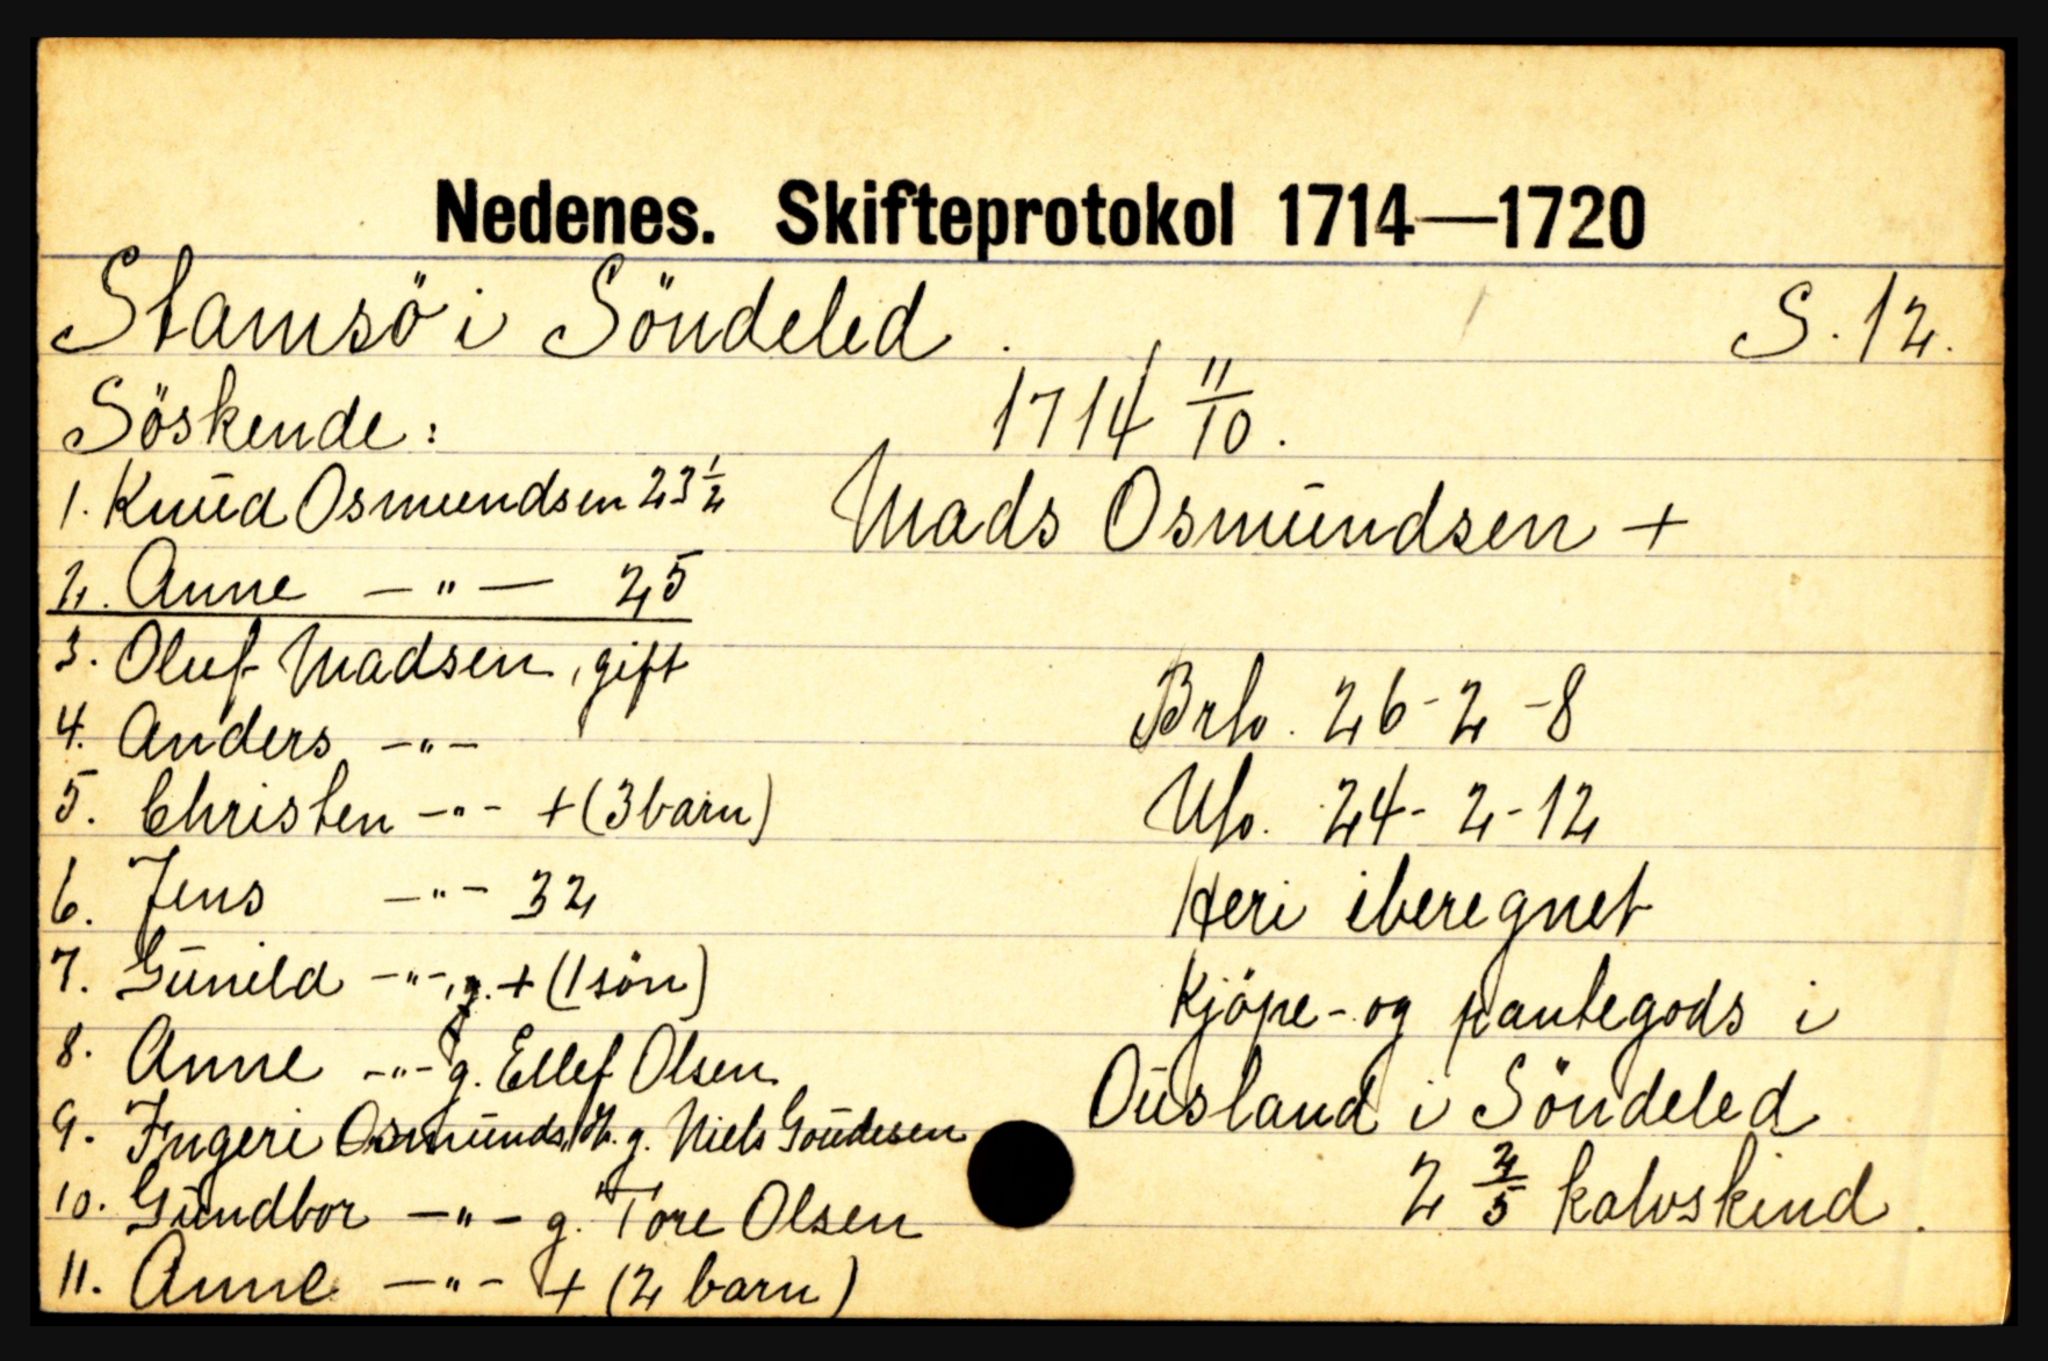 Nedenes. Skifteprotokol 1714—1720
Stamsö i Söndeled.
S. 12.
Söskende:
1714 11/10.
1. Knud Osmundsen 23 1/2
Mads Osmundsen +
2. Anne — " — 25
3. Oluf Madsen, gift
4. Anders - " -
5. Christen - " - + (3 barn)
6. Jens - " - 32
7. Gunild - " -, g. + (1 sön)
8. Anne - " - g. Ellef Olsen
9. Ingeri Osmunds dt. g. Niels Goudesen
10. Gundbor - " - g. Tore Olsen
11. Anne - " - + (2 barn)
Brb. 26 - 2 - 8
Ub. 24 - 2 - 12
Heri iberegnet
Kjöpe- og pantegods i
Ousland i Söndeled
2 2/5 kalvskind.